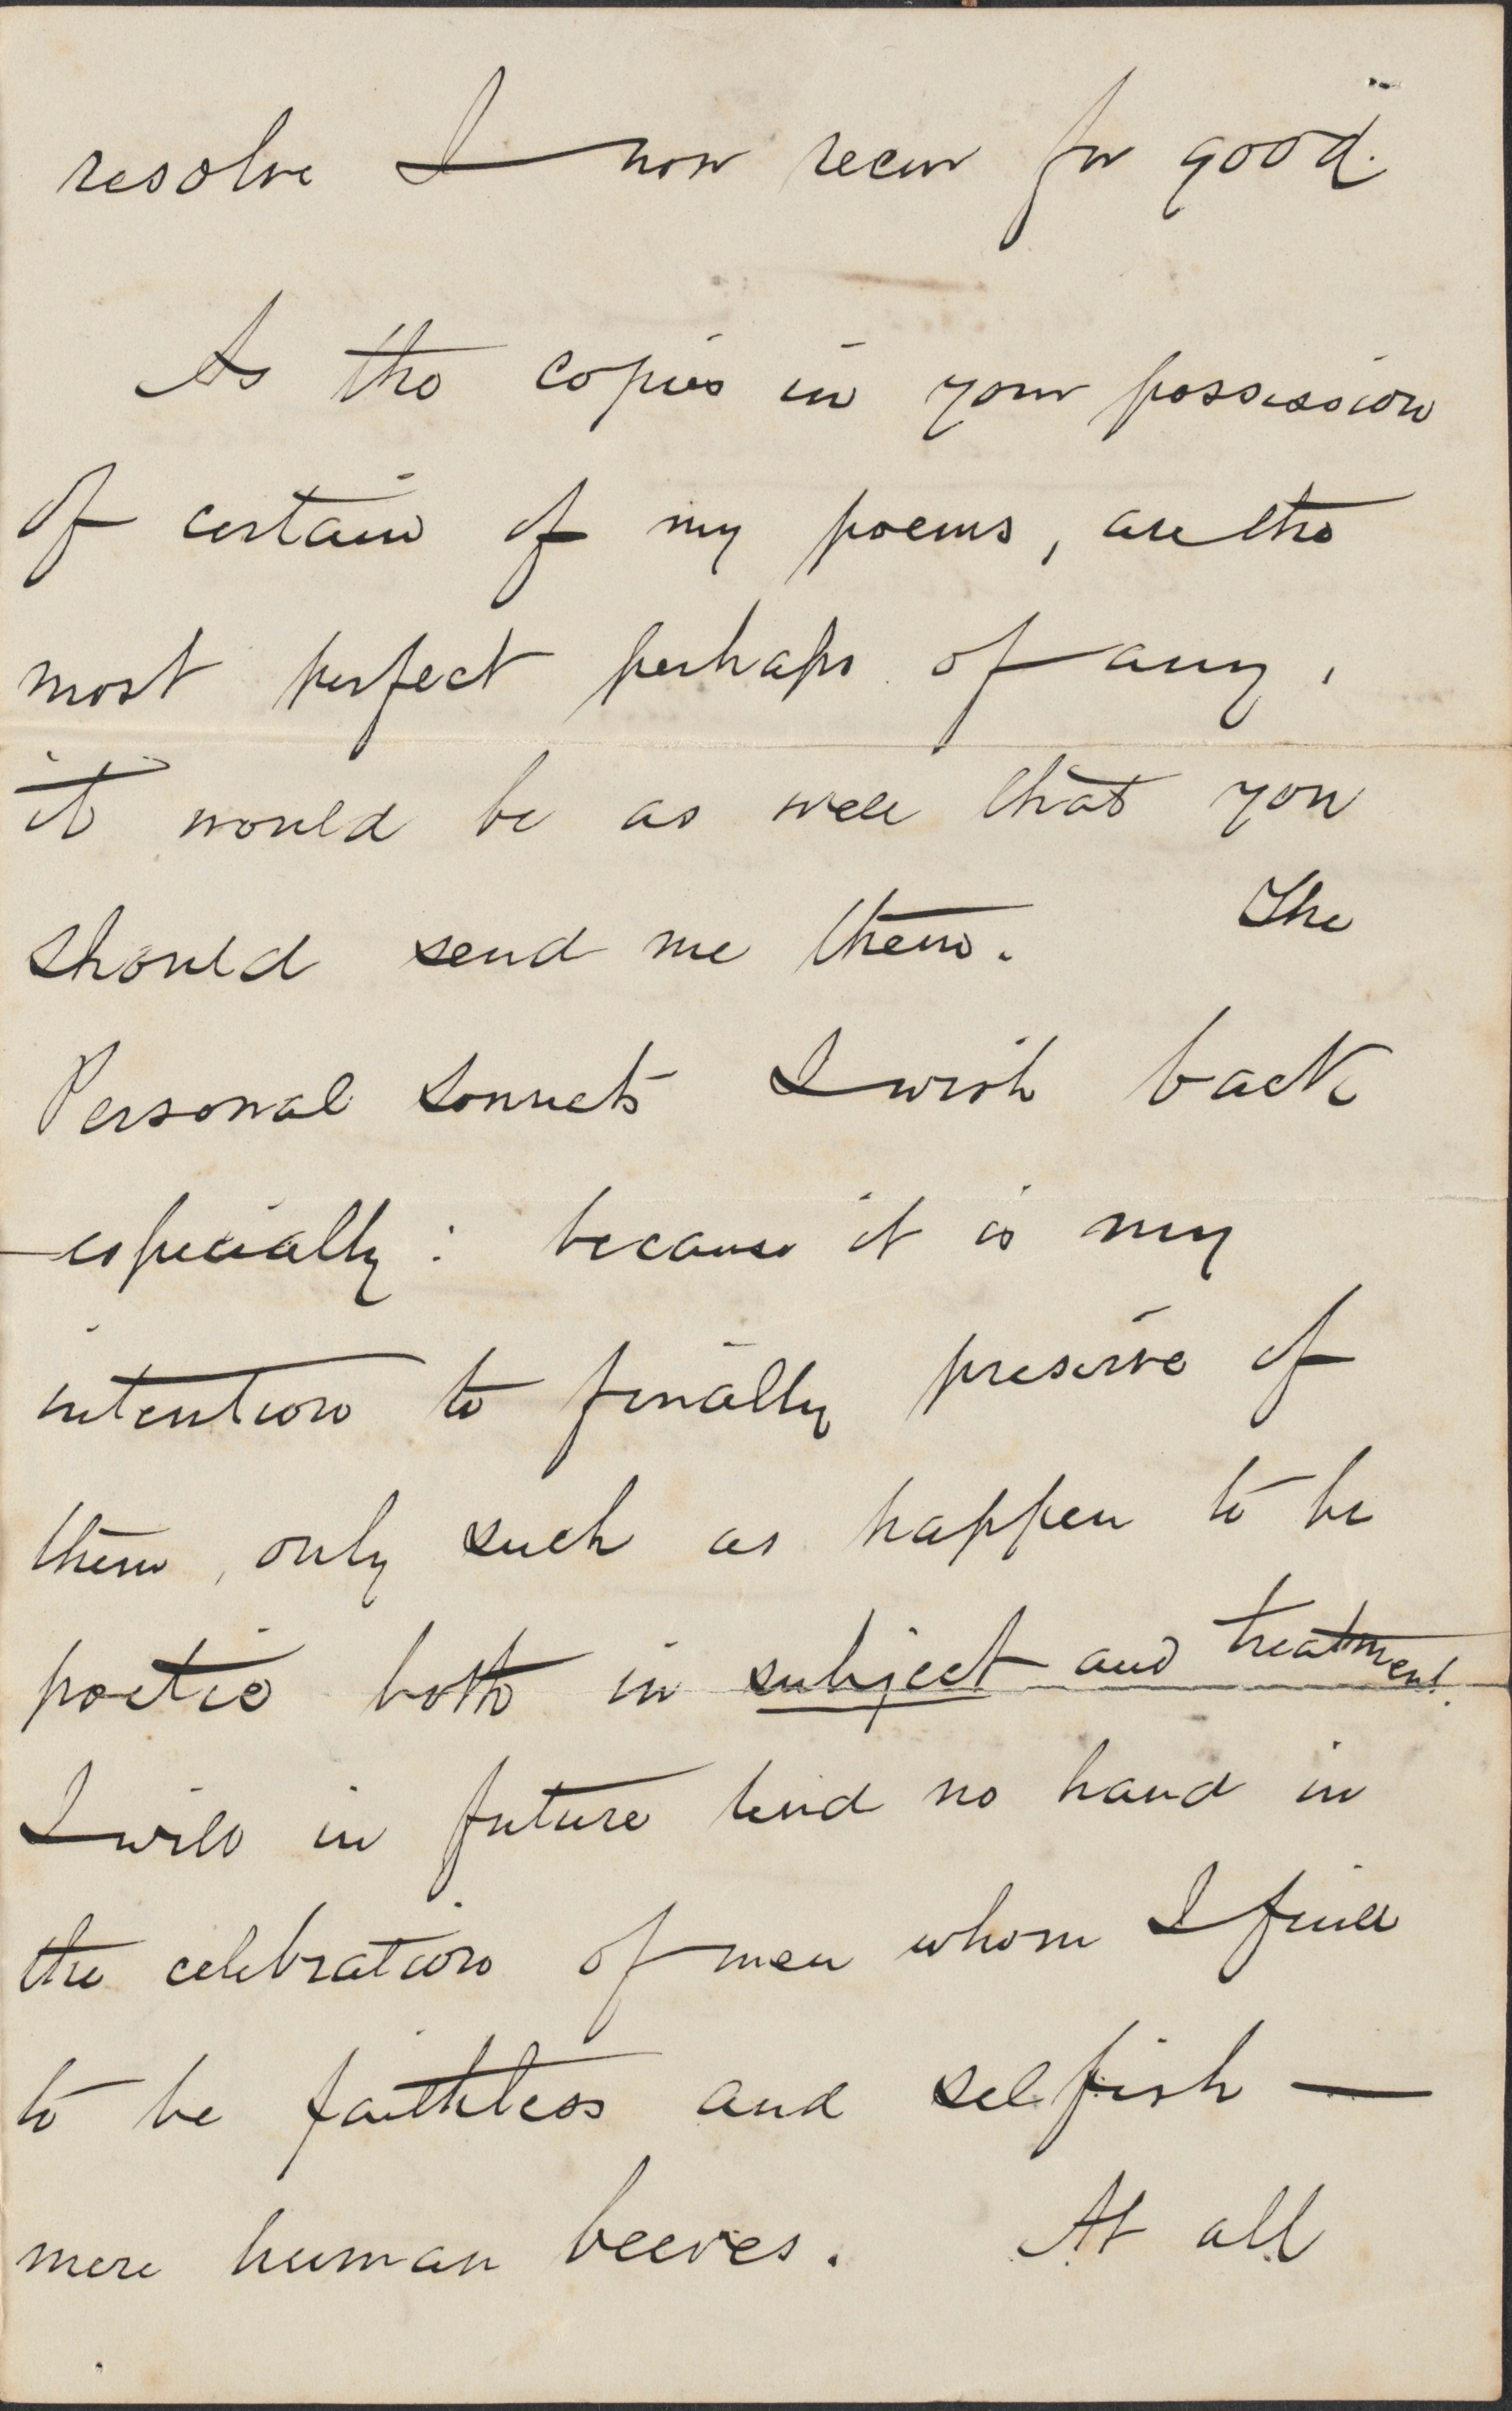 resolve I now recur for good.
As the copies in your possession
of certain of my poems, are the
most perfect perhaps of any,
it would be as well that you
should send me them. The
Personal Sonnets I wish back
especially: because it is my
intention to finally preserve of
them, only such as happen to be
poetic both in subject and treatment.
I will in future lend no hand in
the celebration of men whom I find
to be faithless and selfish —
mere human beeves. At all